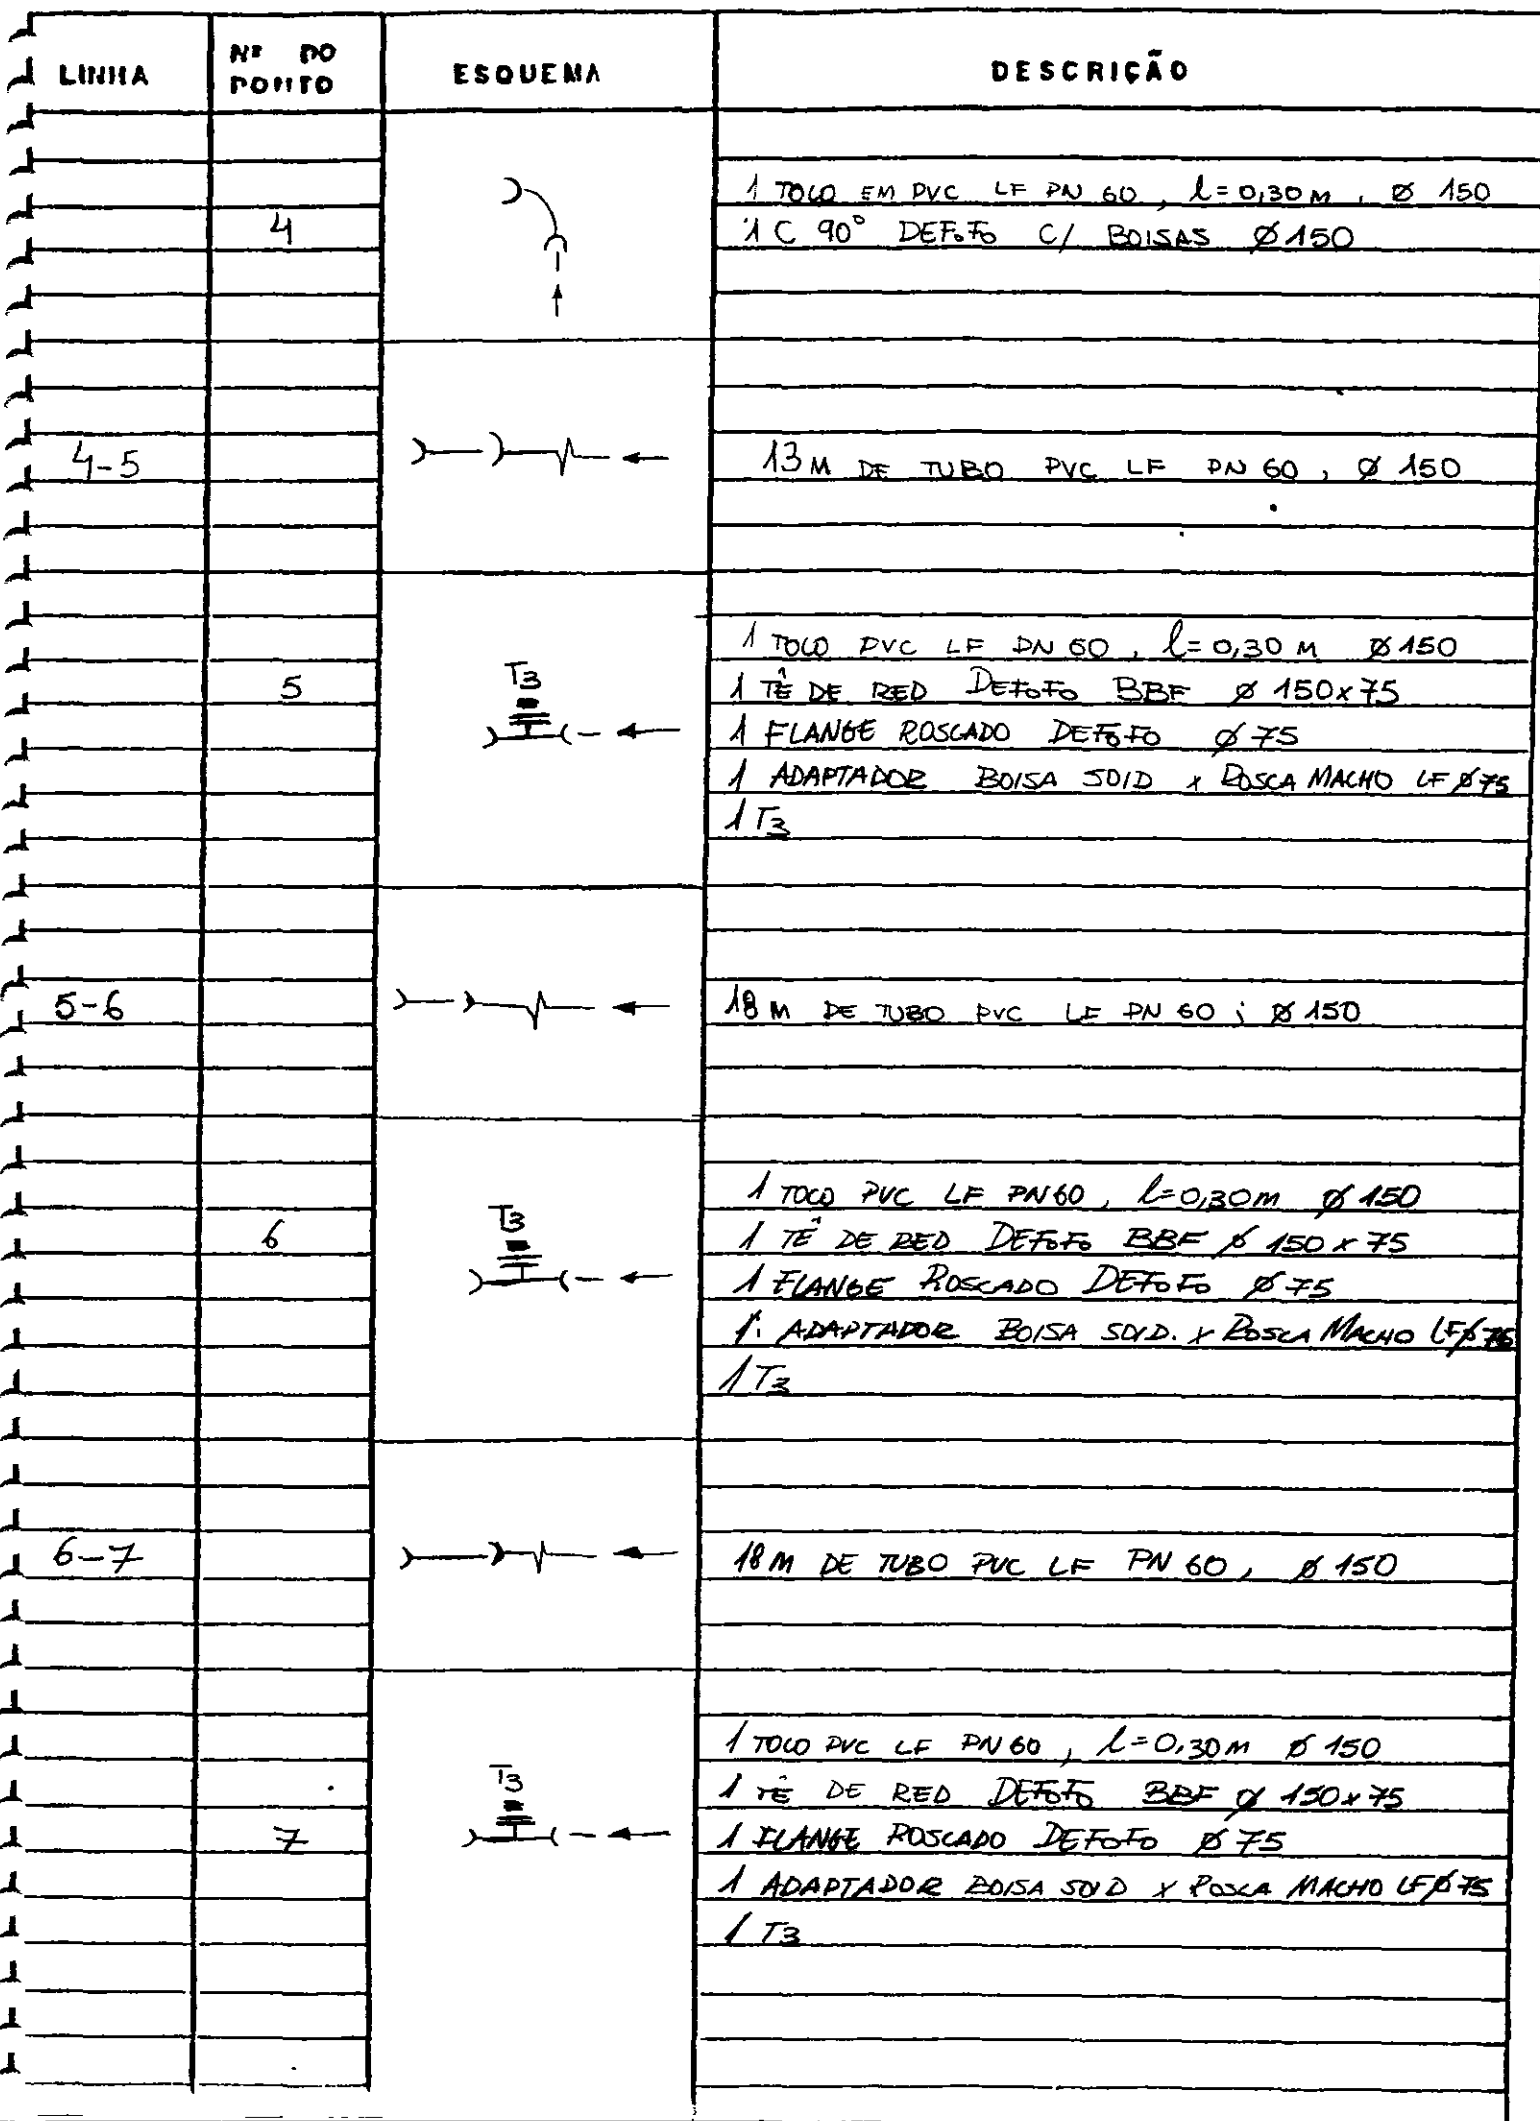 LINHA
Nº DO PONTO
ESQUEMA
DESCRIÇÃO
4
1 TOCO EM PVC LF PN 60, l=0,30 M, Ø 150
1 C 90° DEFoFo C/ BOLSAS Ø 150
4-5
13 M DE TUBO PVC LF PN 60, Ø 150
5
T3
1 TOCO PVC LF PN 60, l=0,30 M Ø 150
1 TÊ DE RED DEFoFo BBF Ø 150x75
1 FLANGE ROSCADO DEFoFo Ø 75
1 ADAPTADOR BOLSA SOLD x ROSCA MACHO LF Ø 75
1 T3
5-6
18 M DE TUBO PVC LF PN 60; Ø 150
6
T3
1 TOCO PVC LF PN 60, l=0,30m Ø 150
1 TÊ DE RED DEFoFo BBF Ø 150 x 75
1 FLANGE ROSCADO DEFoFo Ø 75
1 ADAPTADOR BOLSA SOLD. x ROSCA MACHO LF Ø 75
1 T3
6-7
18 M DE TUBO PVC LF PN 60, Ø 150
7
T3
1 TOCO PVC LF PN 60, l=0,30 M Ø 150
1 TÊ DE RED DEFoFo BBF Ø 150x75
1 FLANGE ROSCADO DEFoFo Ø 75
1 ADAPTADOR BOLSA SOLD x ROSCA MACHO LF Ø 75
1 T3